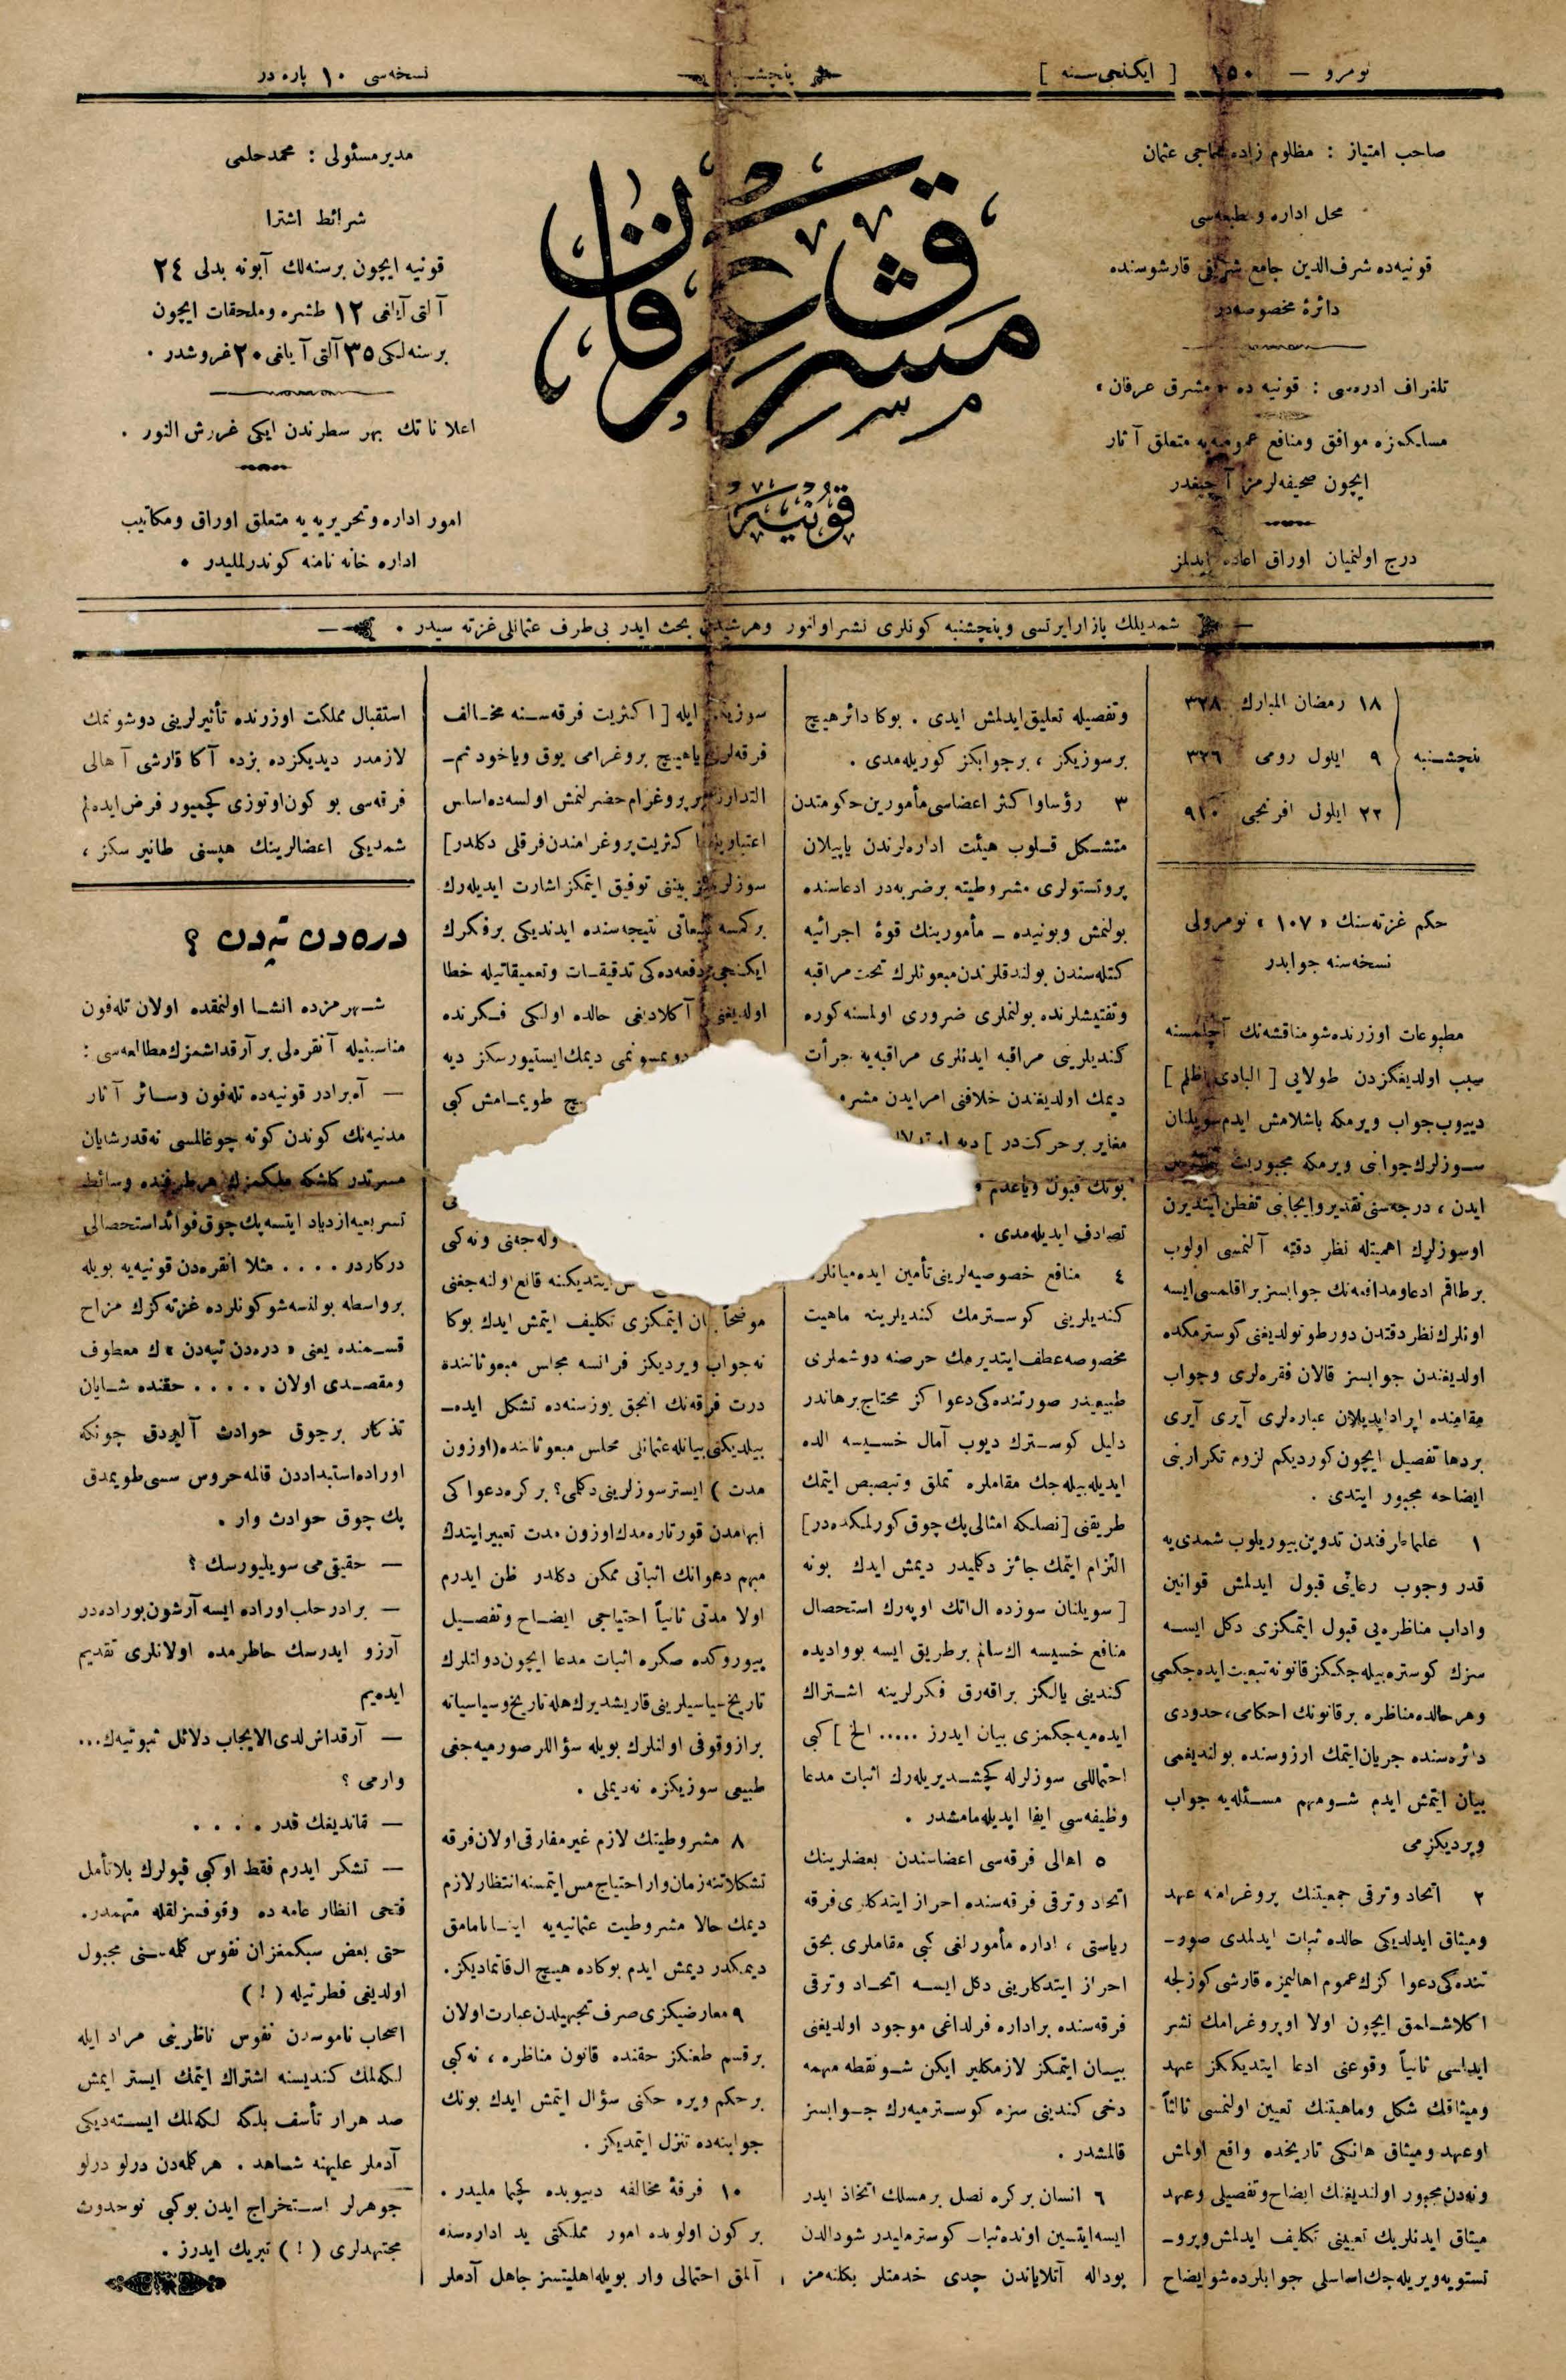 نومرو — ١٥٠ [ ايكنجى سنه ]
پنچشنبه
نسخه‌سى ١٠ پاره در
صاحب امتياز : مظلوم زاده حاجى عثمان
محل اداره و مطبعه‌سى
قونيه‌ده شرف‌الدين جامع شريفى قارشوسنده
دائرهٔ مخصوصه‌در
تلغراف ادره‌سى : قونيه ده « مشرق عرفان »
مسلكمزه موافق ومنافع عموميه‌يه متعلق آثار
ايچون صحيفه‌لرمز آچيقدر
درج اولنميان اوراق اعاده ايدلمز
مشرق عرفان
قونيه
مدير مسئولى : محمدحلمى
شرائط اشترا
قونيه ايچون برسنه‌لك آبونه بدلى ٢٤
آلتى آيلغى ١٢ طشره وملحقات ايچون
برسنه‌لكى ٣٥ آلتى آيلغى ٢٠ غروشدر .
اعلاناتك بهر سطرندن ايكى غروش النور .
امور اداره وتحريريه يه متعلق اوراق ومكاتيب
اداره خانه نامنه كوندرلمليدر .
شمديلك پازارايرتسى وپنچشنبه كونلرى نشراولنور وهرشيدن بحث ايدر بى‌طرف عثمانلى غزته سيدر .
١٨ رمضان المبارك ٣٢٨
پنچشنبه ٩ ايلول رومى ٣٢٦
٢٢ ايلول افرنجى ٩١٠
حكم غزته‌سنك « ١٠٧ » نومرولى
نسخه‌سنه جوابدر
مطبوعات اوزرنده‌شومناقشه‌نك آچلمسنه
سبب اولديغكزدن طولايى [ البادى اظلم ]
دييوب‌جواب ويرمكه باشلامش ايدم سويلنان
سوزلرك‌جوابى ويرمكه مجبوريت
ايدن ، درجه‌سنى تقديروايجابى تفطن‌ايتديرن
اوسوزلرك اهميتله نظر دقته آلنمسى اولوب
برطاقم ادعاومدافعه‌نك جوابسز براقلمسى‌ايسه
اونلرك نظردقتدن دورطوتولديغنى كوسترمكده
اولديغندن جوابسز قالان فقره‌لرى وجواب
مقامنده ايرادايديلان عباره‌لرى آيرى آيرى
بردها تفصيل ايچون‌كورديكم لزوم تكرارينى
ايضاحه مجبور ايتدى .
١ علماطرفندن تدوين‌بيوريلوب شمدى‌يه
قدر وجوب رعايتى قبول ايدلمش قوانين
واداب مناظره‌يى قبول ايتمكزى دكل ايسه
سزك كوستره‌بيله‌جككزقانونه تبعيت‌ايده‌جكمى
وهرحالده‌مناظره برقانونك احكامى، حدودى
دائره‌سنده جريان‌ايتمك ارزوسنده بولنديغمى
بيان ايتمش ايدم شومهم مسئله‌يه جواب
ويرديكزمى
٢ اتحاد وترقى جمعيتنك پروغرامنه عهد
وميثاق ايدلديكى حالده ثبات ايدلمدى صور-
تنده‌كى‌دعوا كزك‌عموم اهاليمزه قارشى كوزلجه
اكلاشلمق ايچون اولا اوپروغرامك نشر
ايدلسى ثانياً وقوعنى ادعا ايتديككز عهد
وميثاقك شكل وماهيتنك تعيين اولنمسى ثالثاً
اوعهد وميثاق هانكى تاريخده واقع اولمش
ونه‌دن‌مجبور اولنديغنك ايضاح‌وتفصيلى وعهد
ميثاق ايدنلريك تعيينى تكليف ايدلمش وپرو-
تستويه‌ويريله‌جك‌اساسلى جوابلرده‌شوايضاح
وتفصيله تعليق‌ايدلمش ايدى . بوكا دائرهيچ
برسوزيكز ، برجوابكز كوريله‌مدى .
٣ رؤساواكثر اعضاسى‌مأمورين‌حكومتدن
متشكل قلوب هيئت اداره‌لرندن ياپيلان
پروتستولرى مشروطيته برضربه‌در ادعاسنده
بولنمش وبونيده - مأمورينك قوهٔ اجرائيه
كتله‌سندن بولندقلرندن‌مبعوثلرك تحت‌مراقبه
وتفتيشلرنده بولنملرى ضرورى اولمسنه‌كوره
كنديلرينى مراقبه ايدنلرى مراقبه‌يه جرأت
ديمك اولديغندن خلافنى امرايدن مشرو
مغاير برحركت‌در ] ديه
بونك قبول وياعدم
تصادف ايديله‌مدى .
٤ منافع خصوصيه‌لرينى‌تأمين ايده‌ميانلره
كنديلرينى كوسترمك كنديلرينه ماهيت
مخصوصه‌عطف‌ايتديرمك حرصنه دوشملرى
طبيعيدر صورتنده‌كى‌دعوا كز محتاج‌برهاندر
دليل كوسترك ديوب آمال خسيسه الده
ايديله‌بيله‌جك مقاملره تملق وتبصبص ايتمك
طريقنى [نصلكه امثالى‌پك چوق كورلمكده‌در]
التزام ايتمك جائز دكليدر ديمش ايدك بونه
[ سويلنان سوزده ال‌اتك اوپه‌رك استحصال
منافع خسيسه اك سالم برطريق ايسه بوواديده
كندينى يالكز براقه‌رق فكرلرينه اشتراك
ايده‌ميه‌جكمزى بيان ايدرز ..... الخ ] كبى
احتماللى سوزلرله كچشديريله‌رك اثبات مدعا
وظيفه‌سى ايفا ايديله‌مامشدر .
٥ اهالى فرقه‌سى اعضاسندن بعضلرينك
اتحاد وترقى فرقه‌سنده احراز ايتدكلرى‌فرقه
رياستى ، اداره مأمورلغى كبى مقاملرى بحق
احراز ايتدكلرينى دكل ايسه اتحاد وترقى
فرقه‌سنده براداره قرلداغى موجود اولديغنى
بيان ايتمكز لازمكلير ايكن شونقطه مهمه
دخى كندينى سزه كوسترميه‌رك جوابسز
قالمشدر .
٦ انسان بركره نصل برمسلك اتخاذ ايدر
ايسه‌ايتسين اونده‌ثبات كوسترمليدر شودالدن
بوداله آتلاياندن جدى خدمتلر بكلنه‌مز
سوزيكز ايله [ اكثريت فرقه‌سنه مخالف
فرقه‌لرك ياهيچ پروغرامى يوق وياخود تم-
التدارك بر پروغرام‌حضرلنمش اولسه‌ده‌اساس
اعتباريله اكثريت‌پروغرامندن‌فرقلى دكلدر]
سوزلريكز بيننى توفيق ايتمكز اشارت ايديله‌رك
بركمسه تتبعاتى نتيجه‌سنده ايدنديكى برفكرك
ايكنجى دفعه‌ده‌كى تدقيقات وتعميقاتيله خطا
اولديغنى آكلاديغى حالده اولكى فكرنده
دورمسونمى ديمك‌ايستيورسكز ديه
هيچ طويمامش كبى
وله‌جغنى ونه‌كبى
ايتديكنه قانع اولنه‌جغنى
موضحاً بيان ايتمكزى تكليف ايتمش ايدك بوكا
نه‌جواب ويرديكز فرانسه مجلس مبعوثاننده
درت فرقه‌نك انجق يوزسنه‌ده تشكل ايده-
بيلديكنى‌بيانله‌عثمانلى مجلس مبعوثاننده(اوزون
مدت ) ايسترسوزلرينى‌دكلمى؟ بركره‌دعواكى
ابهامدن قورتاره‌مدك‌اوزون مدت تعبيرايتدك
مبهم دعوانك اثباتى ممكن دكلدر ظن ايدرم
اولا مدتى ثانياً احتياجى ايضاح وتفصيل
بيوروكده صكره اثبات مدعا ايچون‌دولتلرك
تاريخ سياسيلرينى‌قاريشديرك‌هله‌تاريخ‌وسياسياته
برازوقوفى اولنلرك بويله سؤاللرصورميه‌جغى
طبيعى سوزيكزه نه‌ديملى .
٨ مشروطيتك لازم غيرمفارقى‌اولان‌فرقه
تشكلاتنه‌زمان‌واراحتياج‌مس‌ايتمسنه‌انتظارلازم
ديمك حالا مشروطيت عثمانيه‌يه اينانمامق
ديمكدر ديمش ايدم بوكاده هيچ ال‌قاتماديكز.
٩ معارضيكزى‌صرف تجهيلدن‌عبارت‌اولان
برقسم طعنكز حقنده قانون مناظره ، نه‌كبى
برحكم ويره حكنى سؤال ايتمش ايدك بونك
جوابنه‌ده تنزل ايتمديكز .
١٠ فرقهٔ مخالفه دييوبده كچمامليدر .
بركون اولوبده امور مملكتى يد اداره‌سنه
آلمق احتمالى وار بويله‌اهليتسز جاهل آدملر
استقبال مملكت اوزرنده تأثيرلرينى دوشونمك
لازمدر ديديكزده بزده آكا قارشى آهالى
فرقه‌سى بوكون‌اوتوزى كچميور فرض‌ايده‌لم
شمديكى اعضالرينك هپسنى طانيرسكز ،
دره‌دن تپه‌دن ؟
شهرمزده انشا اولنمقده اولان تله‌فون
مناسبتيله آنقره‌لى برآرقداشمزك‌مطالعه‌سى :
— آه‌برادر قونيه‌ده تله‌فون وسائر آثار
مدنيه‌نك كوندن كونه چوغالمسى نه‌قدرشايان
مسرتدر كاشكه ملكمزك هرطرفنده وسائط
تسريعيه‌ازدياد ايتسه‌پك‌چوق‌فوائداستحصالى
دركاردر .... مثلا انقره‌دن قونيه‌يه بويله
برواسطه بولنسه‌شوكونلرده غزته‌كزك مزاح
قسمنده يعنى « دره‌دن تپه‌دن » ك معطوف
ومقصدى اولان ..... حقنده شايان
تذكار برچوق حوادث آليردق چونكه
اوراده‌استبداددن قالمه‌خروس سسى‌طويمدق
پك چوق حوادث وار .
— حقيقى‌مى سويليورسك ؟
— برادر حلب‌اوراده ايسه آرشون‌بوراده‌در
آرزو ايدرسك خاطرمده اولانلرى تقديم
ايده‌يم
— آرقداش‌لدى‌الايجاب دلائل ثبوتيه‌ك...
وارمى ؟
— قانديغك قدر ....
— تشكر ايدرم فقط اوكبى قپولرك بلاتأمل
فتحى انظار عامه ده وقوفسزلقله متهمدر.
حتى بعض سبكمغزان نفوس كلمه‌سنى مجبول
اولديغى فطرتيله ( ! )
اصحاب ناموسدن نفوس ناظرينى مراد ايله
لكه‌لمك كنديسنه اشتراك ايتمك ايستر ايمش
صد هزار تأسف بلكه لكه‌لمك ايسته‌ديكى
آدملر عليهنه شاهد . هركلمه‌دن درلو درلو
جوهرلر استخراج ايدن بوكبى نوحدوث
مجتهدلرى ( ! ) تبريك ايدرز .